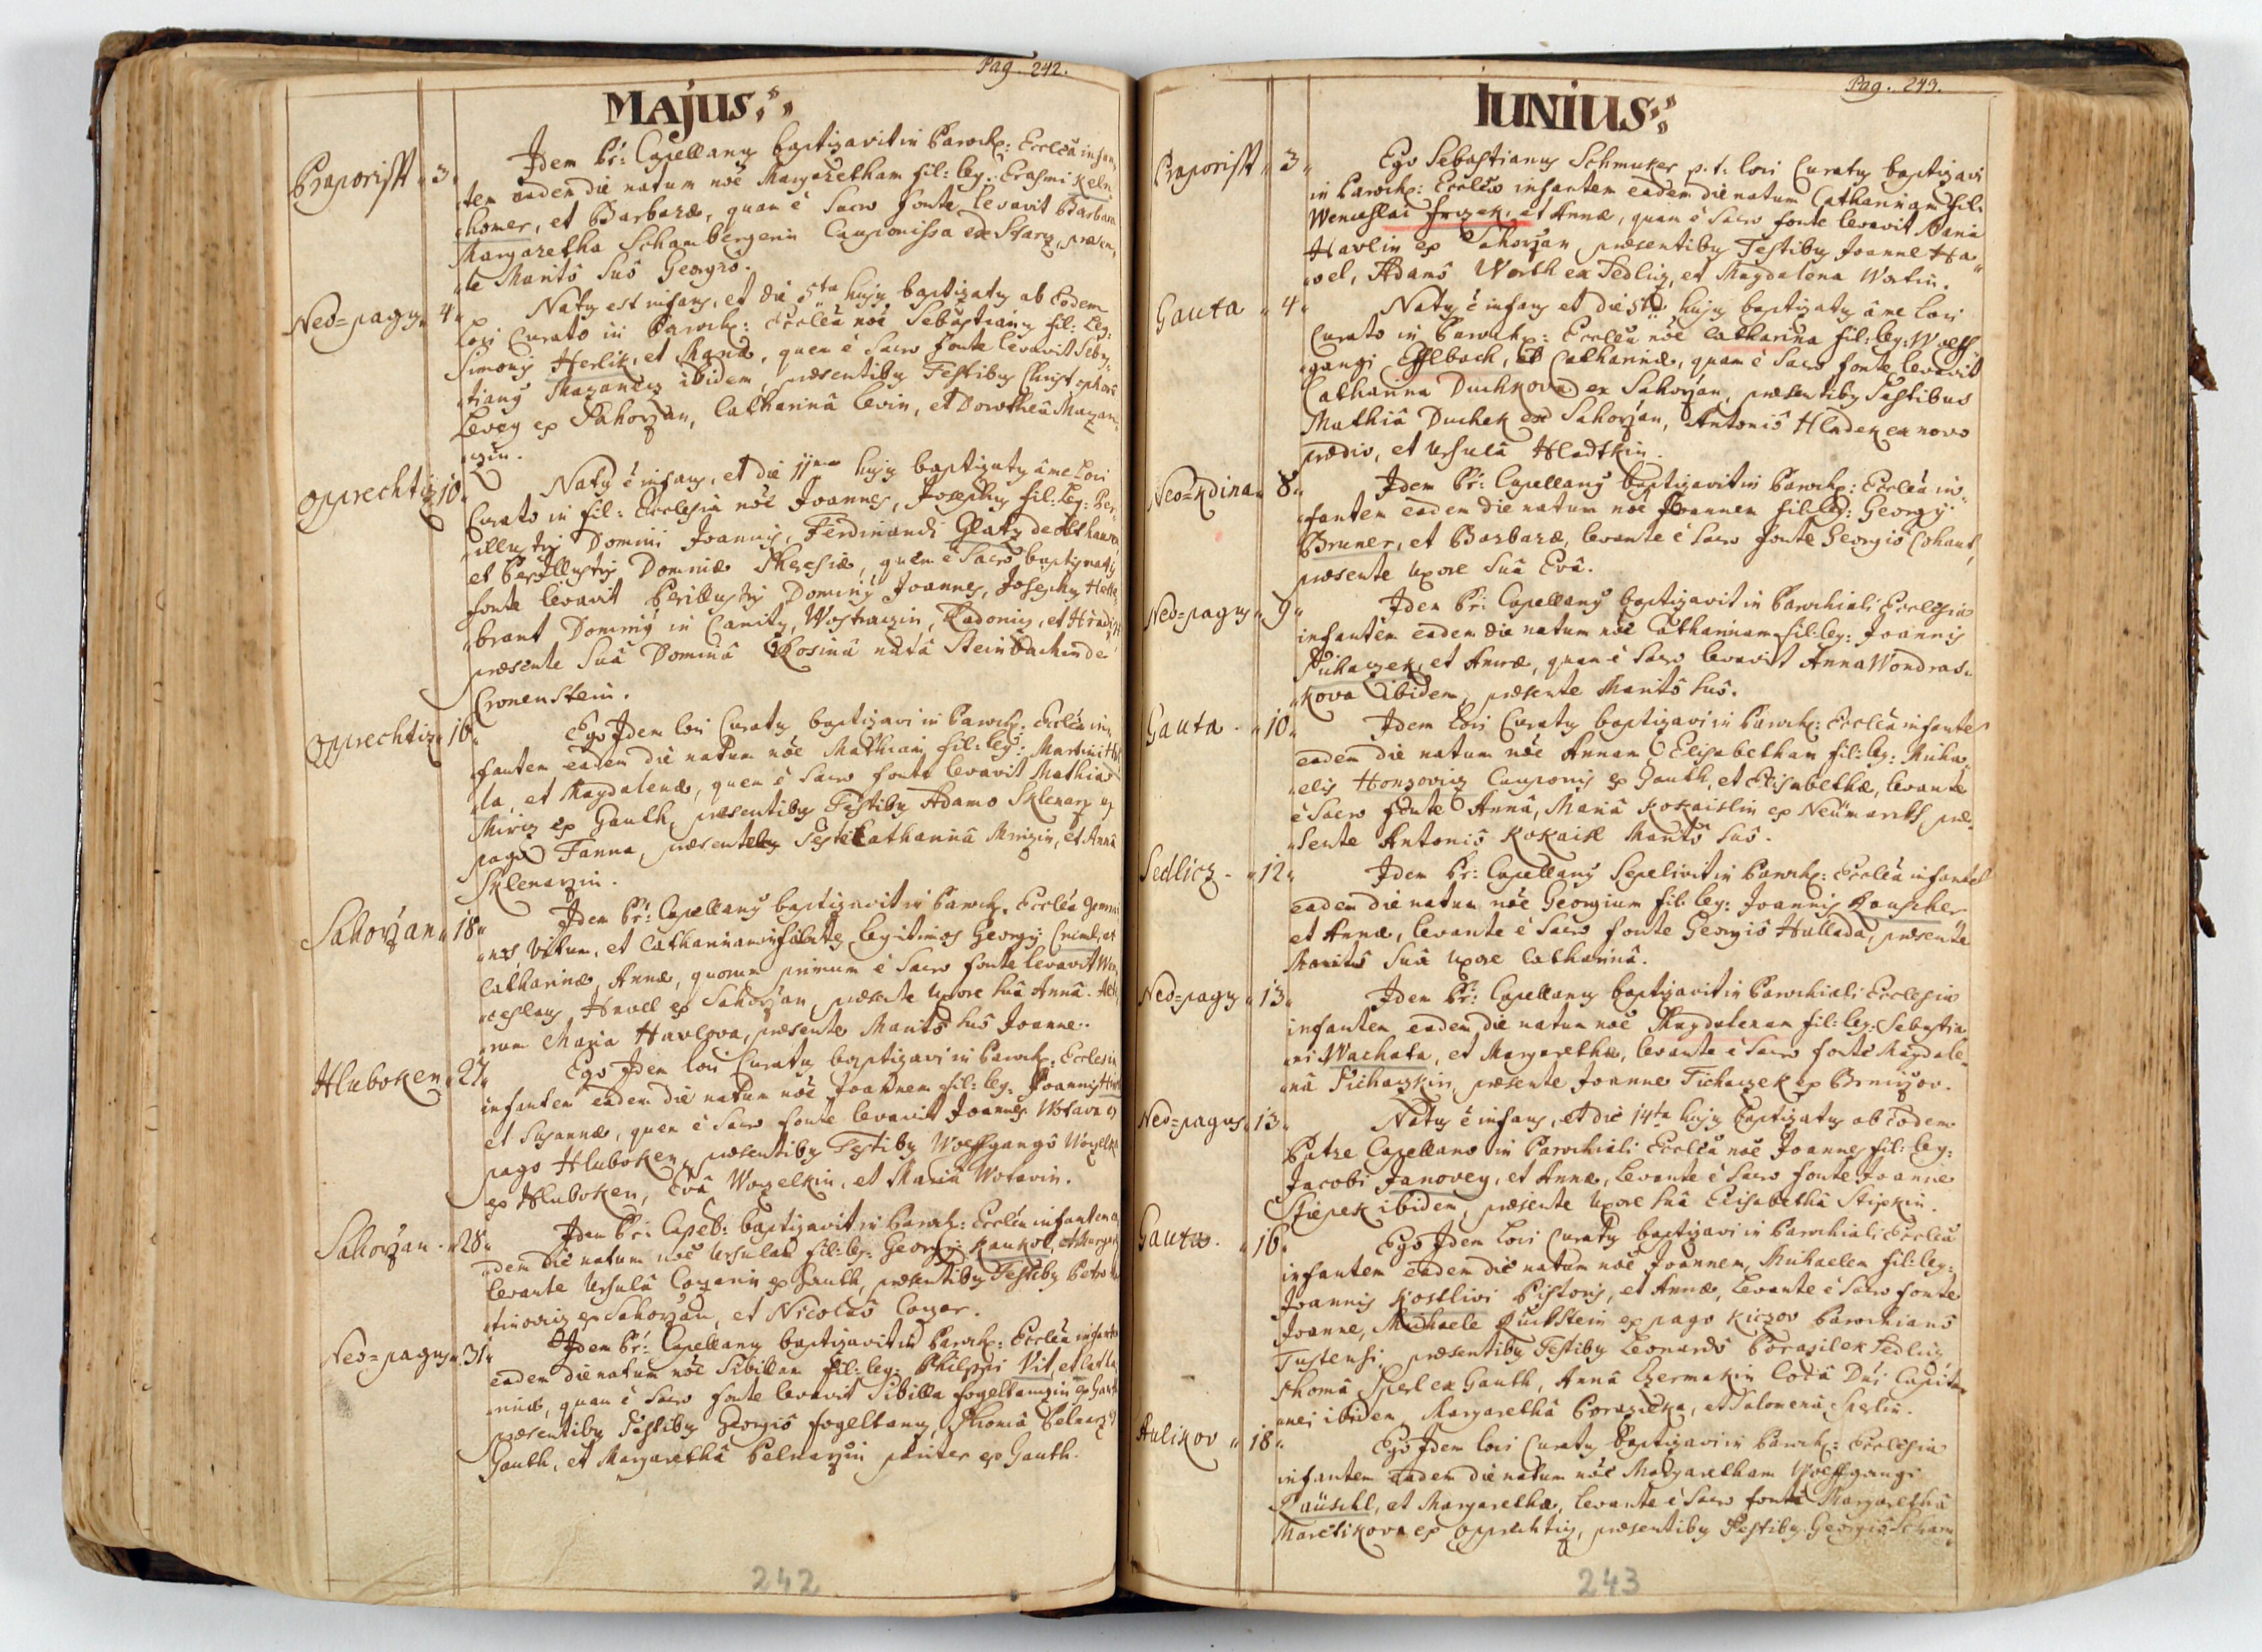 Pag. 242.
MAJUS
Praporischt 3 Idem Pr: Capellanus baptizavit in Paroch: Eccl͠a infan,
tem eadem die natum nõe Margaretham fil: leg: Erasmi Keln
homer, et Barbaræ, quam è Sacro fonte levavit Barbara
Margaretha Schambergerin Cauponissa ex Starz, præsen,
te Maritô Suô Georgiô.
Neo=pagus 4 Natus est infans, et die 5ta hujus baptizatus ab Eodem
Loci Curato in Paroch: Eccl͠a nõe Sebastianus fil: Leg:
Simonis Herlik, et Mariæ, quem è Sacro fonte levavit Seba,
tianus Mazanecz ibidem, præsentibus Testibus Christophorô
Levey ex Sahorzan, Catharinâ Levin, et Dorotheâ Mazan,
czin.
Opprechtiz 10 Natus è infans, et die 11ma hujus baptizatus â me Loci
Curato in fil: Ecclesia nõe Joannes, Josephus fil: Leg: Per,
illustris Domini Joannis, Ferdinandi Glatz de Althausen
et Perillustris Dominæ Theresiæ, quem è Sacro baptismatis
fonte levavit Perillustris Dominus Joannes, Josephus Helle,
brant Dominus in Canitz, Wostraczin, Radoniz, et Hradischt
præsente Suâ Dominâ Rosinâ natâ Steinbachin de
Cronenstein.
Opprechtiz 16 Ego Idem loci Curatus baptizavi in Paroch: Eccl͠a in,
fantem eadem die natum nõe Mathiam fil: leg: Martini
la, et Magdalenæ, quem è Sacro fonte levavit Mathias
Miriz ex Gauth, præsentibus Testibus Adamo Sklenarz ex
pago Tanna, Catharinâ Mirizin, et Annâ
Sklenarzin.
Sahorzan 18 Idem Pr: Capellanus baptizavit in Paroch. Eccl͠a Gemel
los, Vitum, et Catharinam infantes legitimos Georgij et
Catharinæ, Annæ, quorum primum è Sacro fonte levavit Wen,
ceslaus Havel ex Sahorzan, præsente Uxore suâ Annâ. Alte,
ram Maria Havlova, præsente Maritô suô Joanne.
Hluboken 27 Ego Idem loci Curatus baptizavi in Paroch. Ecclesia
infantem eadem die natum nõe Joannem fil: leg: Joannis
et Susannæ, quem è Sacro fonte levavit Joannes Wotava ex
pago Hluboken, præsentibus Testibus Wolffgangô Wozelka
ex Hluboken, Evâ Wozelkin, et Mariâ Wotavin.
Sahorzan 28 Idem Pr: Capel: baptizavit in Paroch: Eccl͠a infantem ea
dem die natum nõe Ursulam fil: leg: Georgij Kaukol, et Margar
levante Ursulâ Cozarin ex Gauth, præsentibus Testibus Petro
tinoviz ex Sahorzan, et Nicolaô Cozar.
Neo=pagus 31 Idem Pr: Capellanus baptizavit in Paroch: Eccl͠a infantem
eadem die natum nõe Sibillam fil: leg: Philippi Vit, et Catha
rinæ, quam è Sacro fonte levavit Sibilla Fogeltanzin ex Gauth
præsentibus Testibus Georgiô Fogeltanz, Thomâ Pelnarz ex
Gauth, et Margarethâ Pelnarzin pariter ex Gauth.
242
Pag. 243.
IUNIUS
Praporischt 3 Ego Sebastianus Schmuker p. t. loci Curatus baptizavi
in Paroch: Eccl͠a infantem eadem die natum Catharinam fil:
Wenceslai Frizek, et Annæ, quam è Sacro fonte levavit Maria
Havlin ex Sahorzan, præsentibus Testibus Joanne Ha
vel, Adamô Worth ex Sedliz, et Magdalena Wortin.
Gauta 4 Natus è infans et die 5ta hujus baptizatus â me loci
Curato in Paroch: Eccl͠a nõe Catharina fil: leg: Wolff
gangi Eslbach, et Catharinæ, quam è Sacro fonte levavit
Catharina Duchkova ex Sahorzan, præsentibus Testibus
Mathiâ Duchek ex Sahorzan, Antoniô Hladek ex novo
prædio, et Ursulâ Hladkin.
Neo=Kdina 8 Idem Pr: Capellanus baptizavit in Paroch: Eccl͠a in,
fantem eadem die natum nõe Joannem fil: leg: Georgij
Bruner, et Barbaræ, levante è Sacro fonte Georgiô Cohaut,
præsente Uxore Suâ Evâ.
Neo=pagus 9 Idem Pr: Capellanus baptizavit in Parochiali Ecclesia
infantem eadem die natum nõe Catharinam fil: leg: Joannis
Tichaczek, et Annæ, quam è Sacro levavit Anna Wondras,
kova ibidem, præsente Maritô suô.
Gauta 10 Idem loci Curatus baptizavi in Paroch: Eccl͠a infantem
eadem die natum nõe Annam Elisabetham fil: leg: Micha,
elis Honzoviz Cauponis ex Gauth, et Elisabethæ, levante
è Sacro fonte Annâ, Mariâ Kokaislin ex Neümarckh, præ,
sente Antoniô Kokaisl Maritô suô.
Sedlicz 12 Idem Pr: Capellanus Sepelivit in Paroch: Eccl͠a infantem
eadem die natum nõe Georgium fil: leg: Joannis Rauscher
et Annæ, levante è Sacro fonte Georgiô Hallada, præsente
Maritô Suâ Uxore Catharinâ.
Neo=pagus 13 Idem Pr: Capellanus baptizavit in Parochiali Ecclesia
infantem eadem die natum nõe Magdalenam fil: leg: Sebastia
ni Wachata, et Margarethæ, levante è Sacro fonte Magdale,
nâ Tichaczkin, præsente Joanne Tichaczek ex Brnirzov.
Neo=pagus 13 Natus è infans, et die 14ta hujus baptizatus ab Eodem
Patre Capellano in Parochiali Eccl͠a nõe Joannes fil: leg:
Jacobi Janovey, et Annæ, levante è Sacro fonte Joanne
Stiepek ibidem, præsente Uxore suâ Elisabethâ Stipkin.
Gauta 16 Ego Idem Loci Curatus baptizavi in Parochiali Eccl͠a
infantem eadem die natum nõe Joannem, Michaelem fil: leg:
Joannis Kostlivi Pistoris, et Annæ, levante è Sacro fonte
Joanne, Michaele Ruckstein ex pago Kiczov Parochianô
Tustensi, præsentibus Testibus Leonardô Porazilek Sedliz
Thomâ Sperl ex Gauth, Annâ Czermakin Cocâ Dni Capita
nei ibidem, Margarethâ Porazilka, et Salomenâ Sperlin.
Hulikov 18 Ego Idem loci Curatus baptizavi in Paroch: Ecclesia
infantem eadem die natum nõe Margaretham Wolffgangi
Raüschl, et Margarethæ, levante è Sacro fonte Margarethâ
Marčikova ex Opprechtiz, præsentibus Testibus Georgiô Scham
243